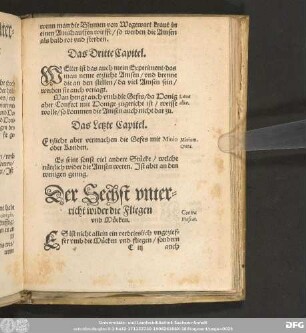 wann man die Blumen von Wegewart kraut in
einen Ameishauffen wirfft / so werden die Amsen
als bald rot vnd sterben.
Das Dritte Capitel.
WEiter ist das auch mein Experiment / das
man neme etzliche Amsen / vnd brenne
sie an den stellen / da viel Amsen sein /
werden sie auch veriagt.
Man hengt auch vmb die Gefeß / da Honig
oder Confect mit Honige zugericht ist / weisse
wolle / so kommen die Amsen auch nicht dar zu.
Das Letzte Capitel.
Etzliche aber vermachen die Gefes mit Minio
oder
Es seint sonst viel andere Stücke / welche
nützlich wider die Amsen weren. Ist aber an den
wenigen gnung.
Der Sechst vnter-
richt wider die Fliegen
vnd Mücken.
ES ist nicht allein ein verdrieslich vngezief-
fer vmb die Mücken vnd fliegen / sondern
C iij auch